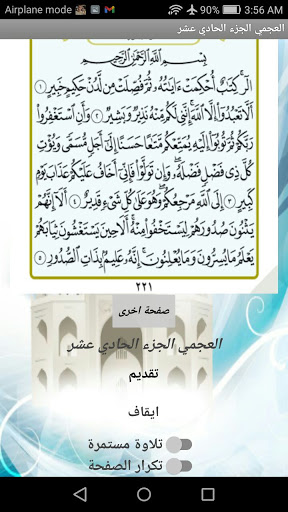 Airplane mode 90% 3:56 AM
العجمي الجزء الحادي عشر
بِسْمِ اللَّهِ الرَّحْمَٰنِ الرَّحِيمِ
الٓر كِتَٰبٌ أُحْكِمَتْ ءَايَٰتُهُۥ ثُمَّ فُصِّلَتْ مِن لَّدُنْ حَكِيمٍ خَبِيرٍ ١
أَلَّا تَعْبُدُوٓا۟ إِلَّا ٱللَّهَ إِنَّنِى لَكُم مِّنْهُ نَذِيرٌ وَبَشِيرٌ ٢ وَأَنِ ٱسْتَغْفِرُوا۟
رَبَّكُمْ ثُمَّ تُوبُوٓا۟ إِلَيْهِ يُمَتِّعْكُم مَّتَٰعًا حَسَنًا إِلَىٰٓ أَجَلٍ مُّسَمًّى وَيُؤْتِ
كُلَّ ذِى فَضْلٍ فَضْلَهُۥ وَإِن تَوَلَّوْا۟ فَإِنِّىٓ أَخَافُ عَلَيْكُمْ عَذَابَ يَوْمٍ
كَبِيرٍ ٣ إِلَى ٱللَّهِ مَرْجِعُكُمْ وَهُوَ عَلَىٰ كُلِّ شَىْءٍ قَدِيرٌ ٤ أَلَآ إِنَّهُمْ
يَثْنُونَ صُدُورَهُمْ لِيَسْتَخْفُوا۟ مِنْهُ أَلَا حِينَ يَسْتَغْشُونَ ثِيَابَهُمْ
يَعْلَمُ مَا يُسِرُّونَ وَمَا يُعْلِنُونَ إِنَّهُۥ عَلِيمٌۢ بِذَاتِ ٱلصُّدُورِ ٥
٢٢١
صفحة اخرى
العجمي الجزء الحادي عشر
تقديم
ايقاف
تلاوة مستمرة
تكرار الصفحة